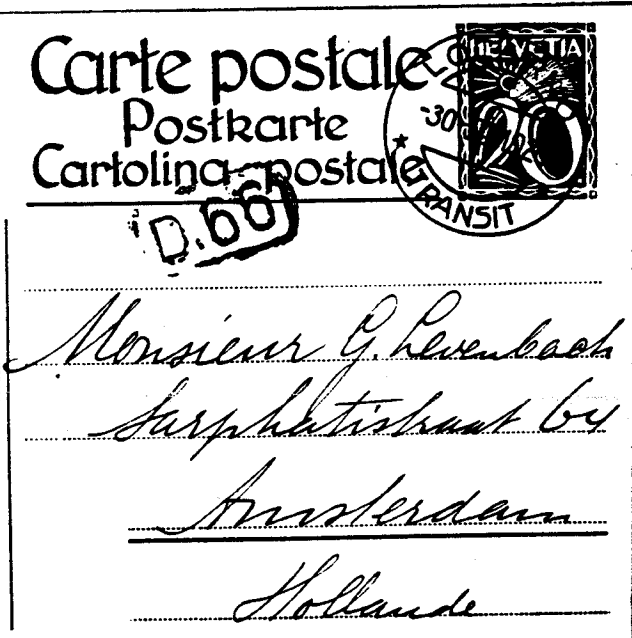 Carte postale
Postkarte
Cartolina postale
HELVETIA
20
-30
TRANSIT
D.66
Monsieur G. Levenbach
Sarphatistraat 64
Amsterdam
Hollande